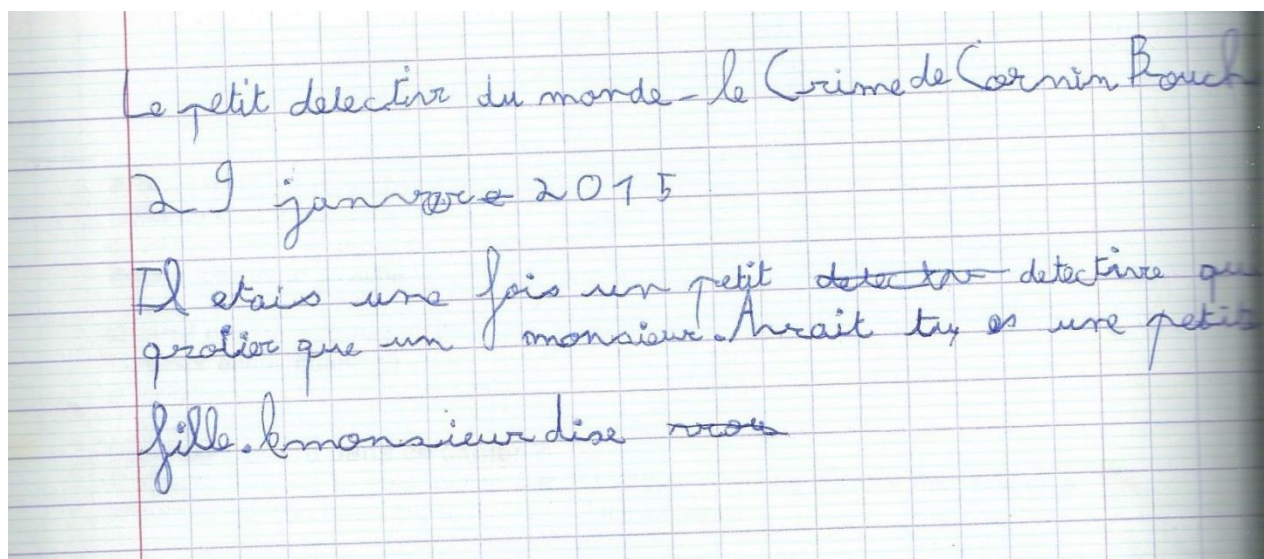 Le petit detective du monde - le Crime de Cornin Bouch
29 janvere 2015
Il etais une fois un petit detective qu
que un monsieur. Avait tuy es une petis
fille. le monsieur dise